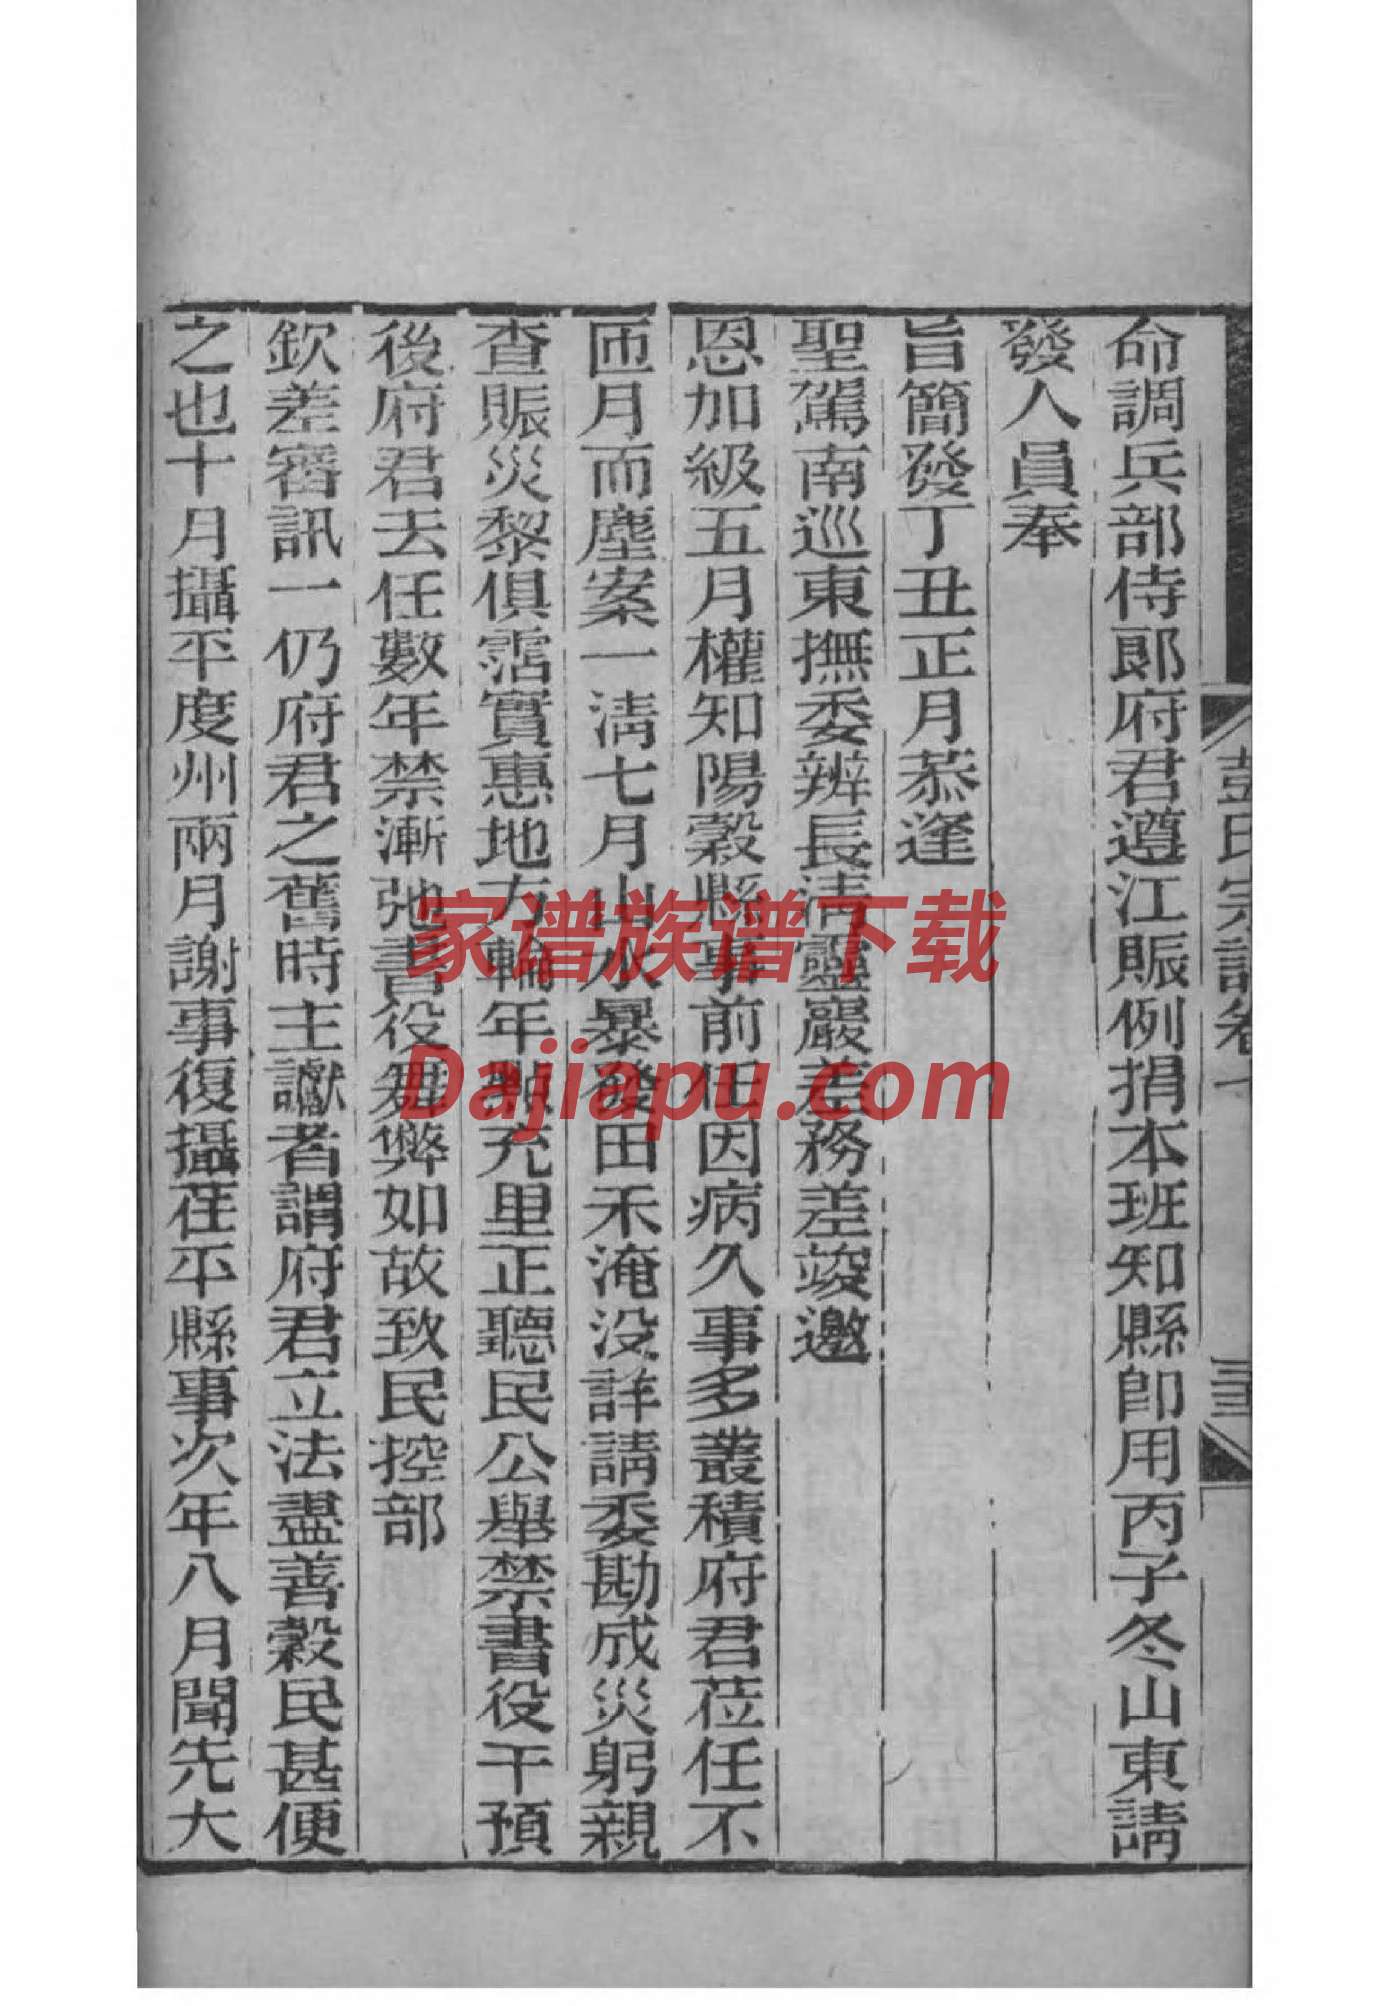 命調兵部侍郞府君遵江賑例捐本班知縣卽用丙子冬山東請
發人員奉
旨簡發丁丑正月恭逢
聖駕南巡東撫委辨長淸靈巖差務差竣邀
恩加級五月權知陽穀縣事前任因病久事多叢積府君莅任不
匝月而塵案一淸七月山水暴發田禾淹没詳請委勘成災躬親
查賑災黎俱霑實惠地方輪年點充里正聽民公舉禁書役干預
後府君去任數年禁漸弛書役舞弊如故致民控部
欽差審訊一仍府君之舊時主讞者謂府君立法盡善穀民甚便
之也十月攝平度州兩月謝事復攝茌平縣事次年八月聞先大
彭氏宗譜卷七
家谱族谱下载
Dajiapu.com